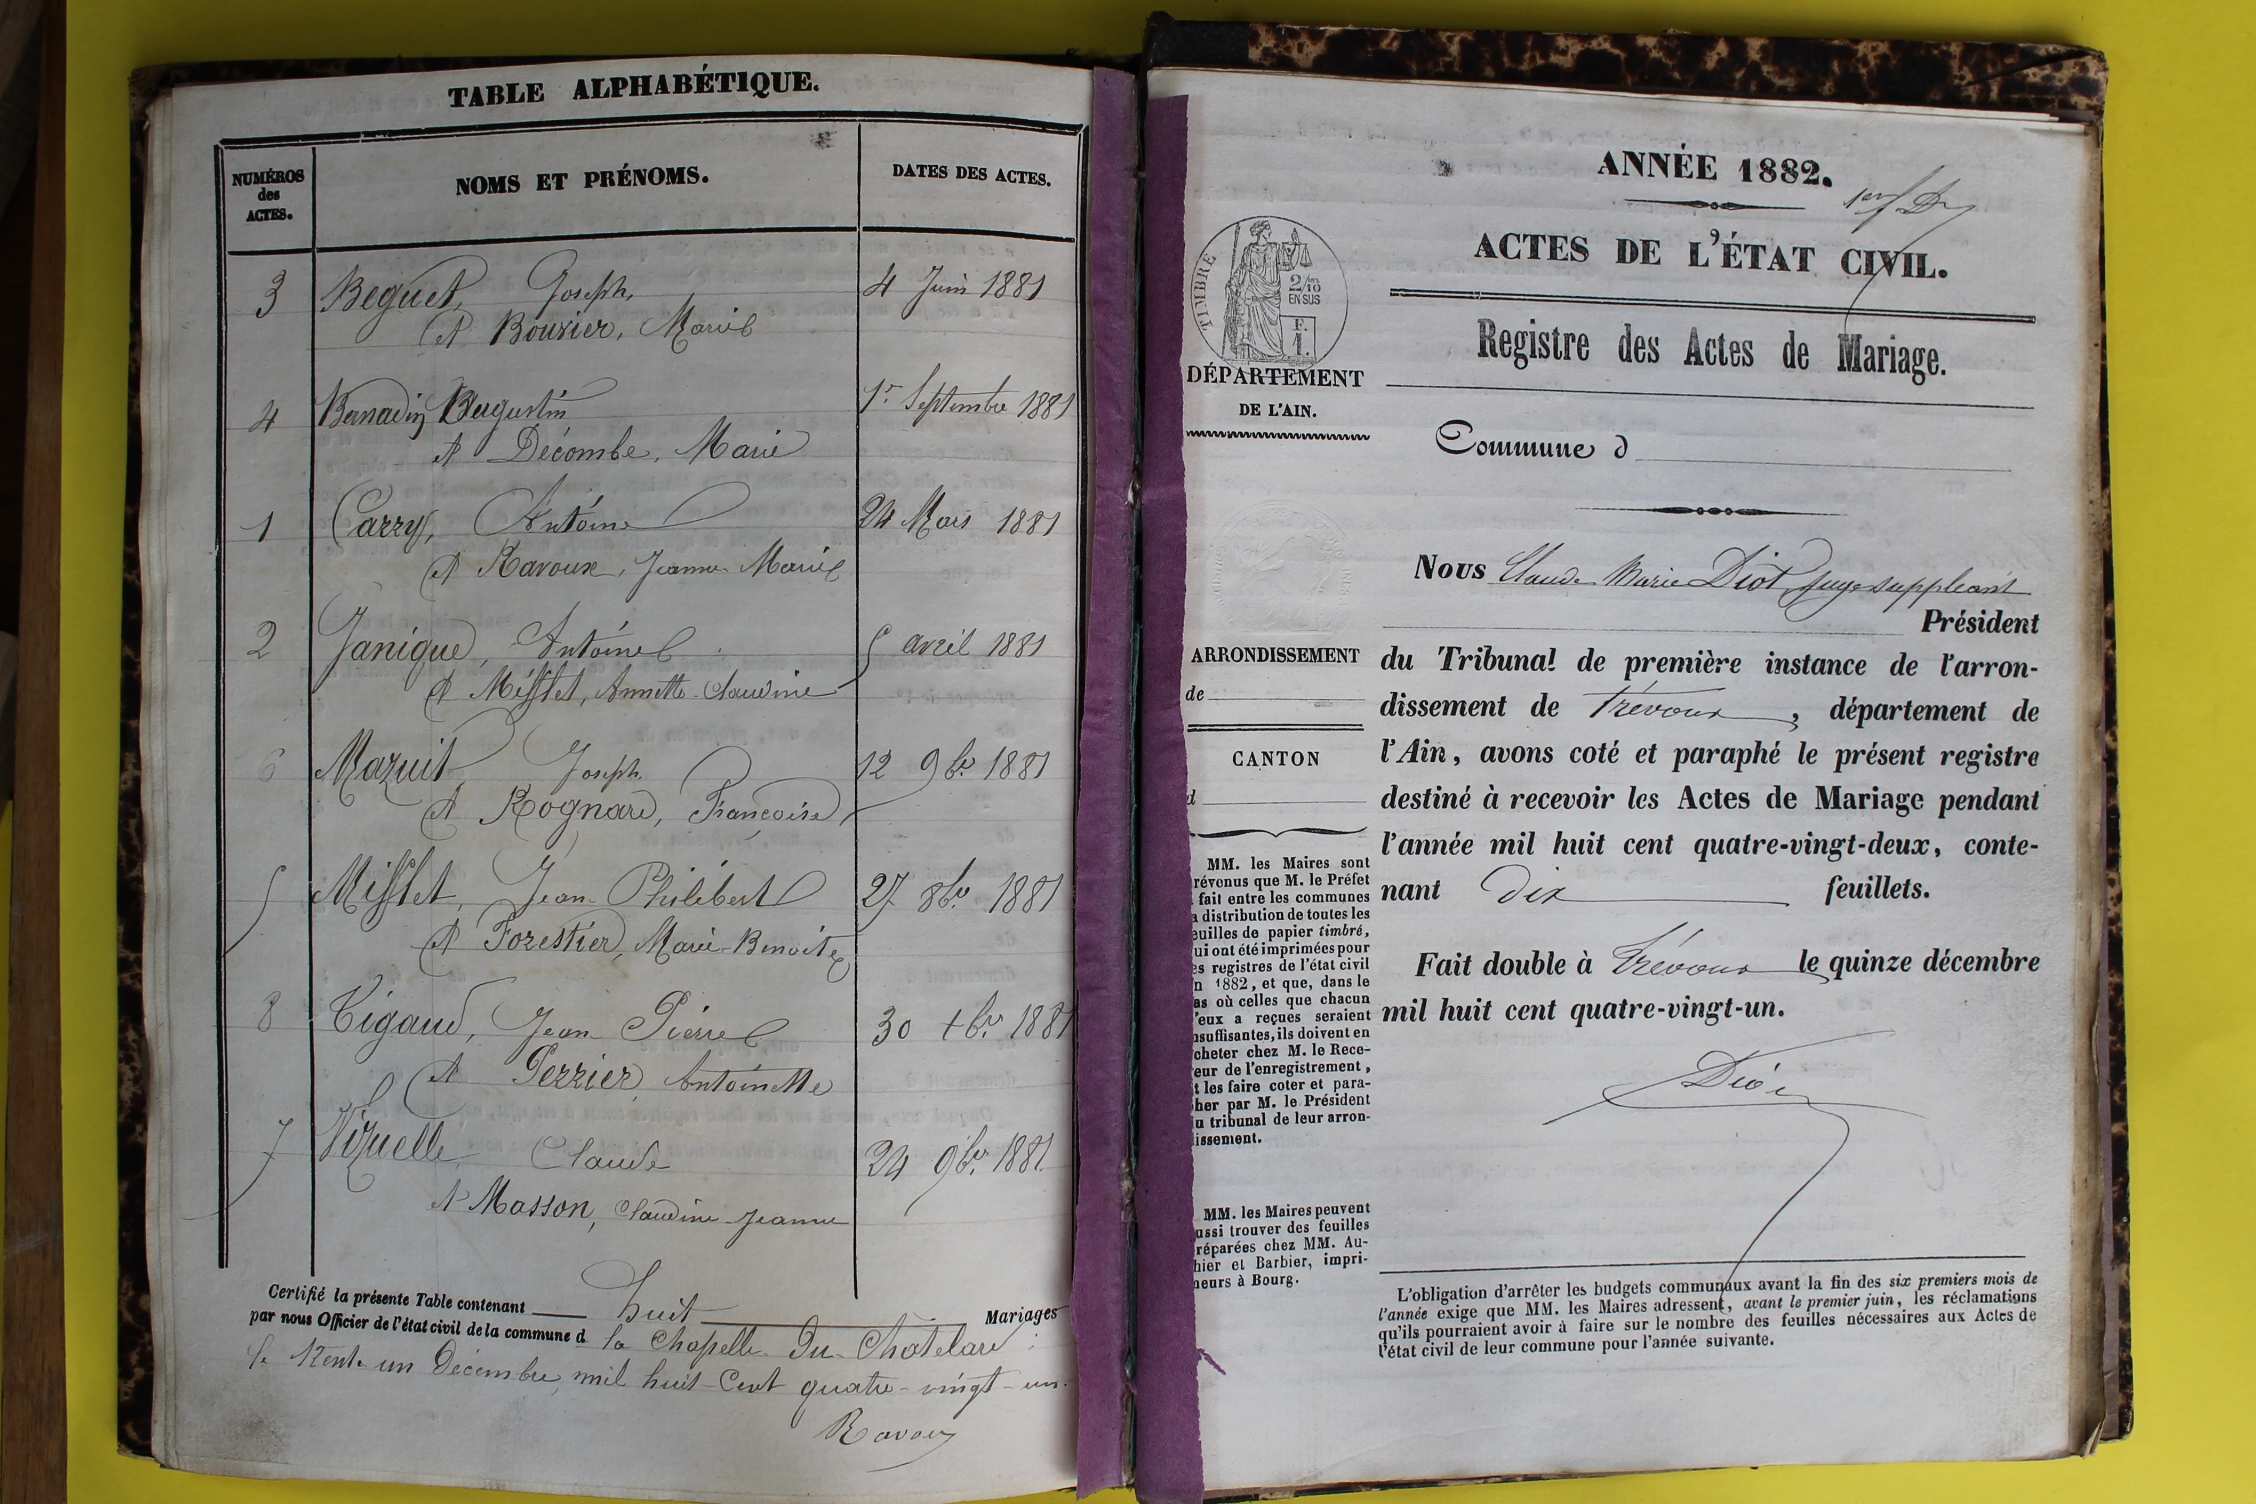 TABLE ALPHABÉTIQUE.
NUMÉROS
des
ACTES.
NOMS ET PRÉNOMS.
DATES DES ACTES.
3 Beguet, Joseph, 4 Juin 1881
et Bouvier, Marie
4 Bernadin Augustin 1r. Septembre 1881
et Décombe, Marie
1 Carry, Antoine 24 Mars 1881
et Ravoux, Jeanne Marie
2 Janique, Antoine 5 avril 1881
et Mifflet, Annette Claudine
6 Mazuit Joseph 12 9bre 1881
et Rognard, Françoise
5 Mifflet, Jean Philibert 27 8bre 1881
et Forestier, Marie-Benoite
8 Tigaud, Jean Pierre 30 xbre 1881
et Perrier, Antoinette
7 Vizuelle, Claude 24 9bre 1881
et Masson, Claudine Jeanne
Certifié la présente Table contenant huit Mariages
par nous Officier de l'état civil de la commune d la Chapelle du Chatelard
le trente un Décembre mil huit Cent quatre-vingt-un.
Ravoux
ANNÉE 1882.
ACTES DE L'ÉTAT CIVIL.
TIMBRE
2/10
EN SUS
F.
1.
Registre des Actes de Mariage.
DÉPARTEMENT
DE L'AIN.
Commune d
Nous Claude Marie Diot, Juge suppléant
Président
du Tribunal de première instance de l'arron-
dissement de Trévoux, département de
l'Ain, avons coté et paraphé le présent registre
destiné à recevoir les Actes de Mariage pendant
l'année mil huit cent quatre-vingt-deux, conte-
nant dix feuillets.
Fait double à Trévoux le quinze décembre
mil huit cent quatre-vingt-un.
Diot
ARRONDISSEMENT
de
CANTON
d
MM. les Maires sont
révenus que M. le Préfet
fait entre les communes
a distribution de toutes les
euilles de papier timbré,
ui ont été imprimées pour
es registres de l'état civil
n 1882, et que, dans le
as où celles que chacun
'eux a reçues seraient
nsuffisantes, ils doivent en
cheter chez M. le Rece-
eur de l'enregistrement,
t les faire coter et para-
her par M. le Président
u tribunal de leur arron-
issement.
MM. les Maires peuvent
ussi trouver des feuilles
réparées chez MM. Au-
hier et Barbier, impri-
neurs à Bourg.
L'obligation d'arrêter les budgets communaux avant la fin des six premiers mois de
l'année exige que MM. les Maires adressent, avant le premier juin, les réclamations
qu'ils pourraient avoir à faire sur le nombre des feuilles nécessaires aux Actes de
l'état civil de leur commune pour l'année suivante.